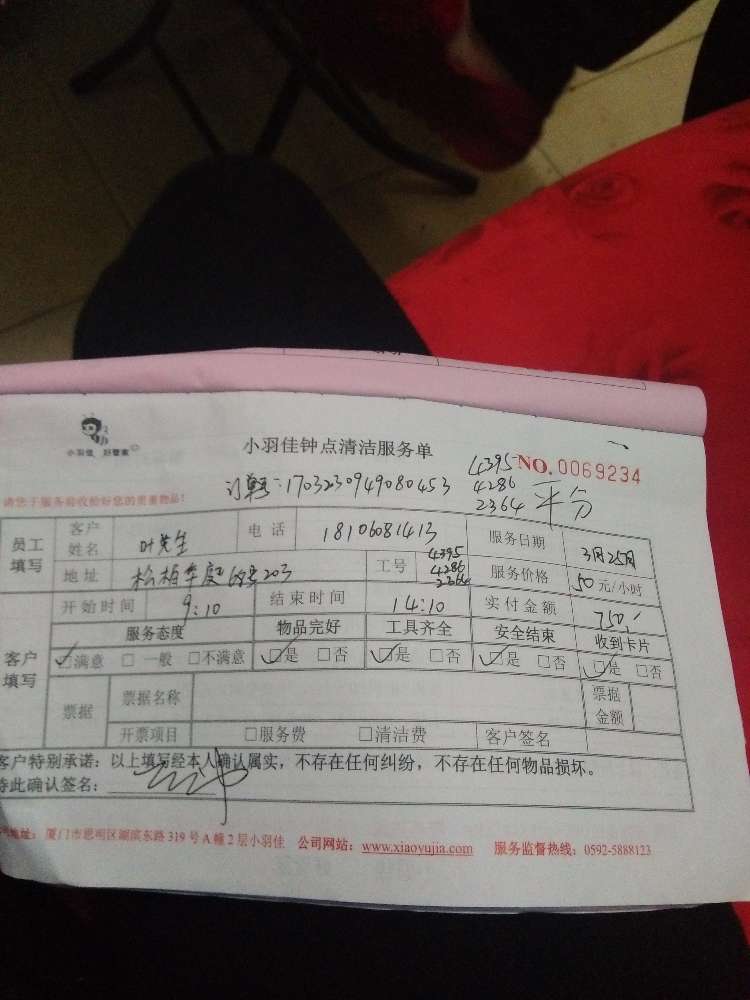 小羽佳 好管家
小羽佳钟点清洁服务单
NO.0069234
4395
4286
2364 平分
订单号:1703230949080453
请您于服务前收拾好您的贵重物品!
员工填写 客户姓名 叶先生 电话 18106081413 服务日期 3月25日
地址 松柏 203 工号 4395 4286 2364 服务价格 50元/小时
开始时间 9:10 结束时间 14:10 实付金额 750
客户填写 服务态度 物品完好 工具齐全 安全结束 收到卡片
☑满意 □一般 □不满意 ☑是 □否 ☑是 □否 ☑是 □否 ☑是 □否
票据 票据名称 票据金额
开票项目 □服务费 □清洁费 客户签名
客户特别承诺:以上填写经本人确认属实,不存在任何纠纷,不存在任何物品损坏。
特此确认签名:
地址:厦门市思明区湖滨东路319号A幢2层小羽佳 公司网站:www.xiaoyujia.com 服务监督热线:0592-5888123